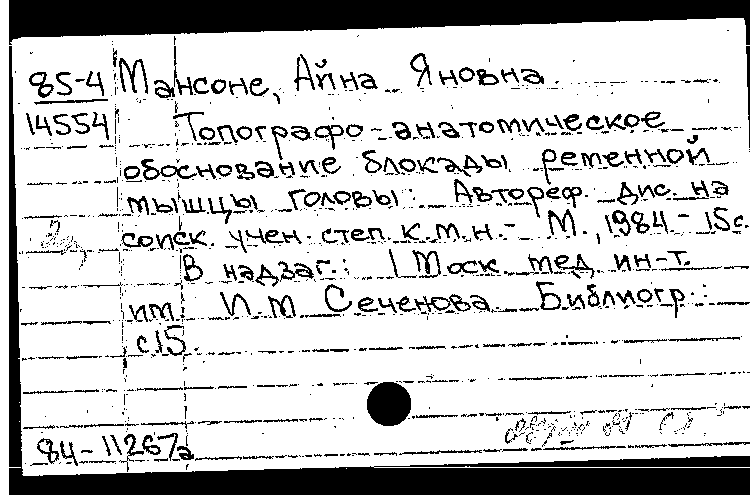 85-4 Мансоне, Айна Яновна
14554 Топографо-анатомическое
обоснование блокады ременной
мышцы головы: Автореф. дис. на
соиск. учен. степ. к.м.н. - М., 1984 - 15с.
В надзаг.: 1 Моск. мед. ин-т.
им. И.М Сеченова. Библиогр.:
с15.
84-11267а